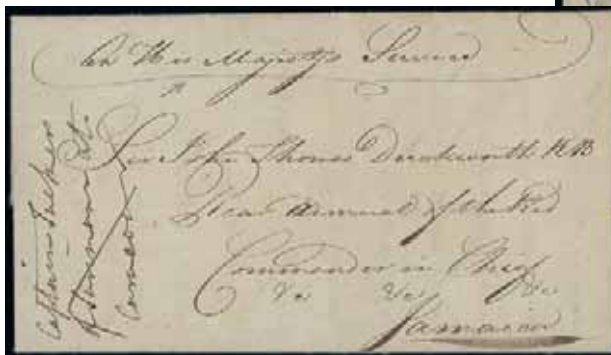 On His Majestys Service
Sir John Thomas Duckworth KB
Rear Admiral of the Red
Commander in Chief
&c &c &c
Jamaica
Captain